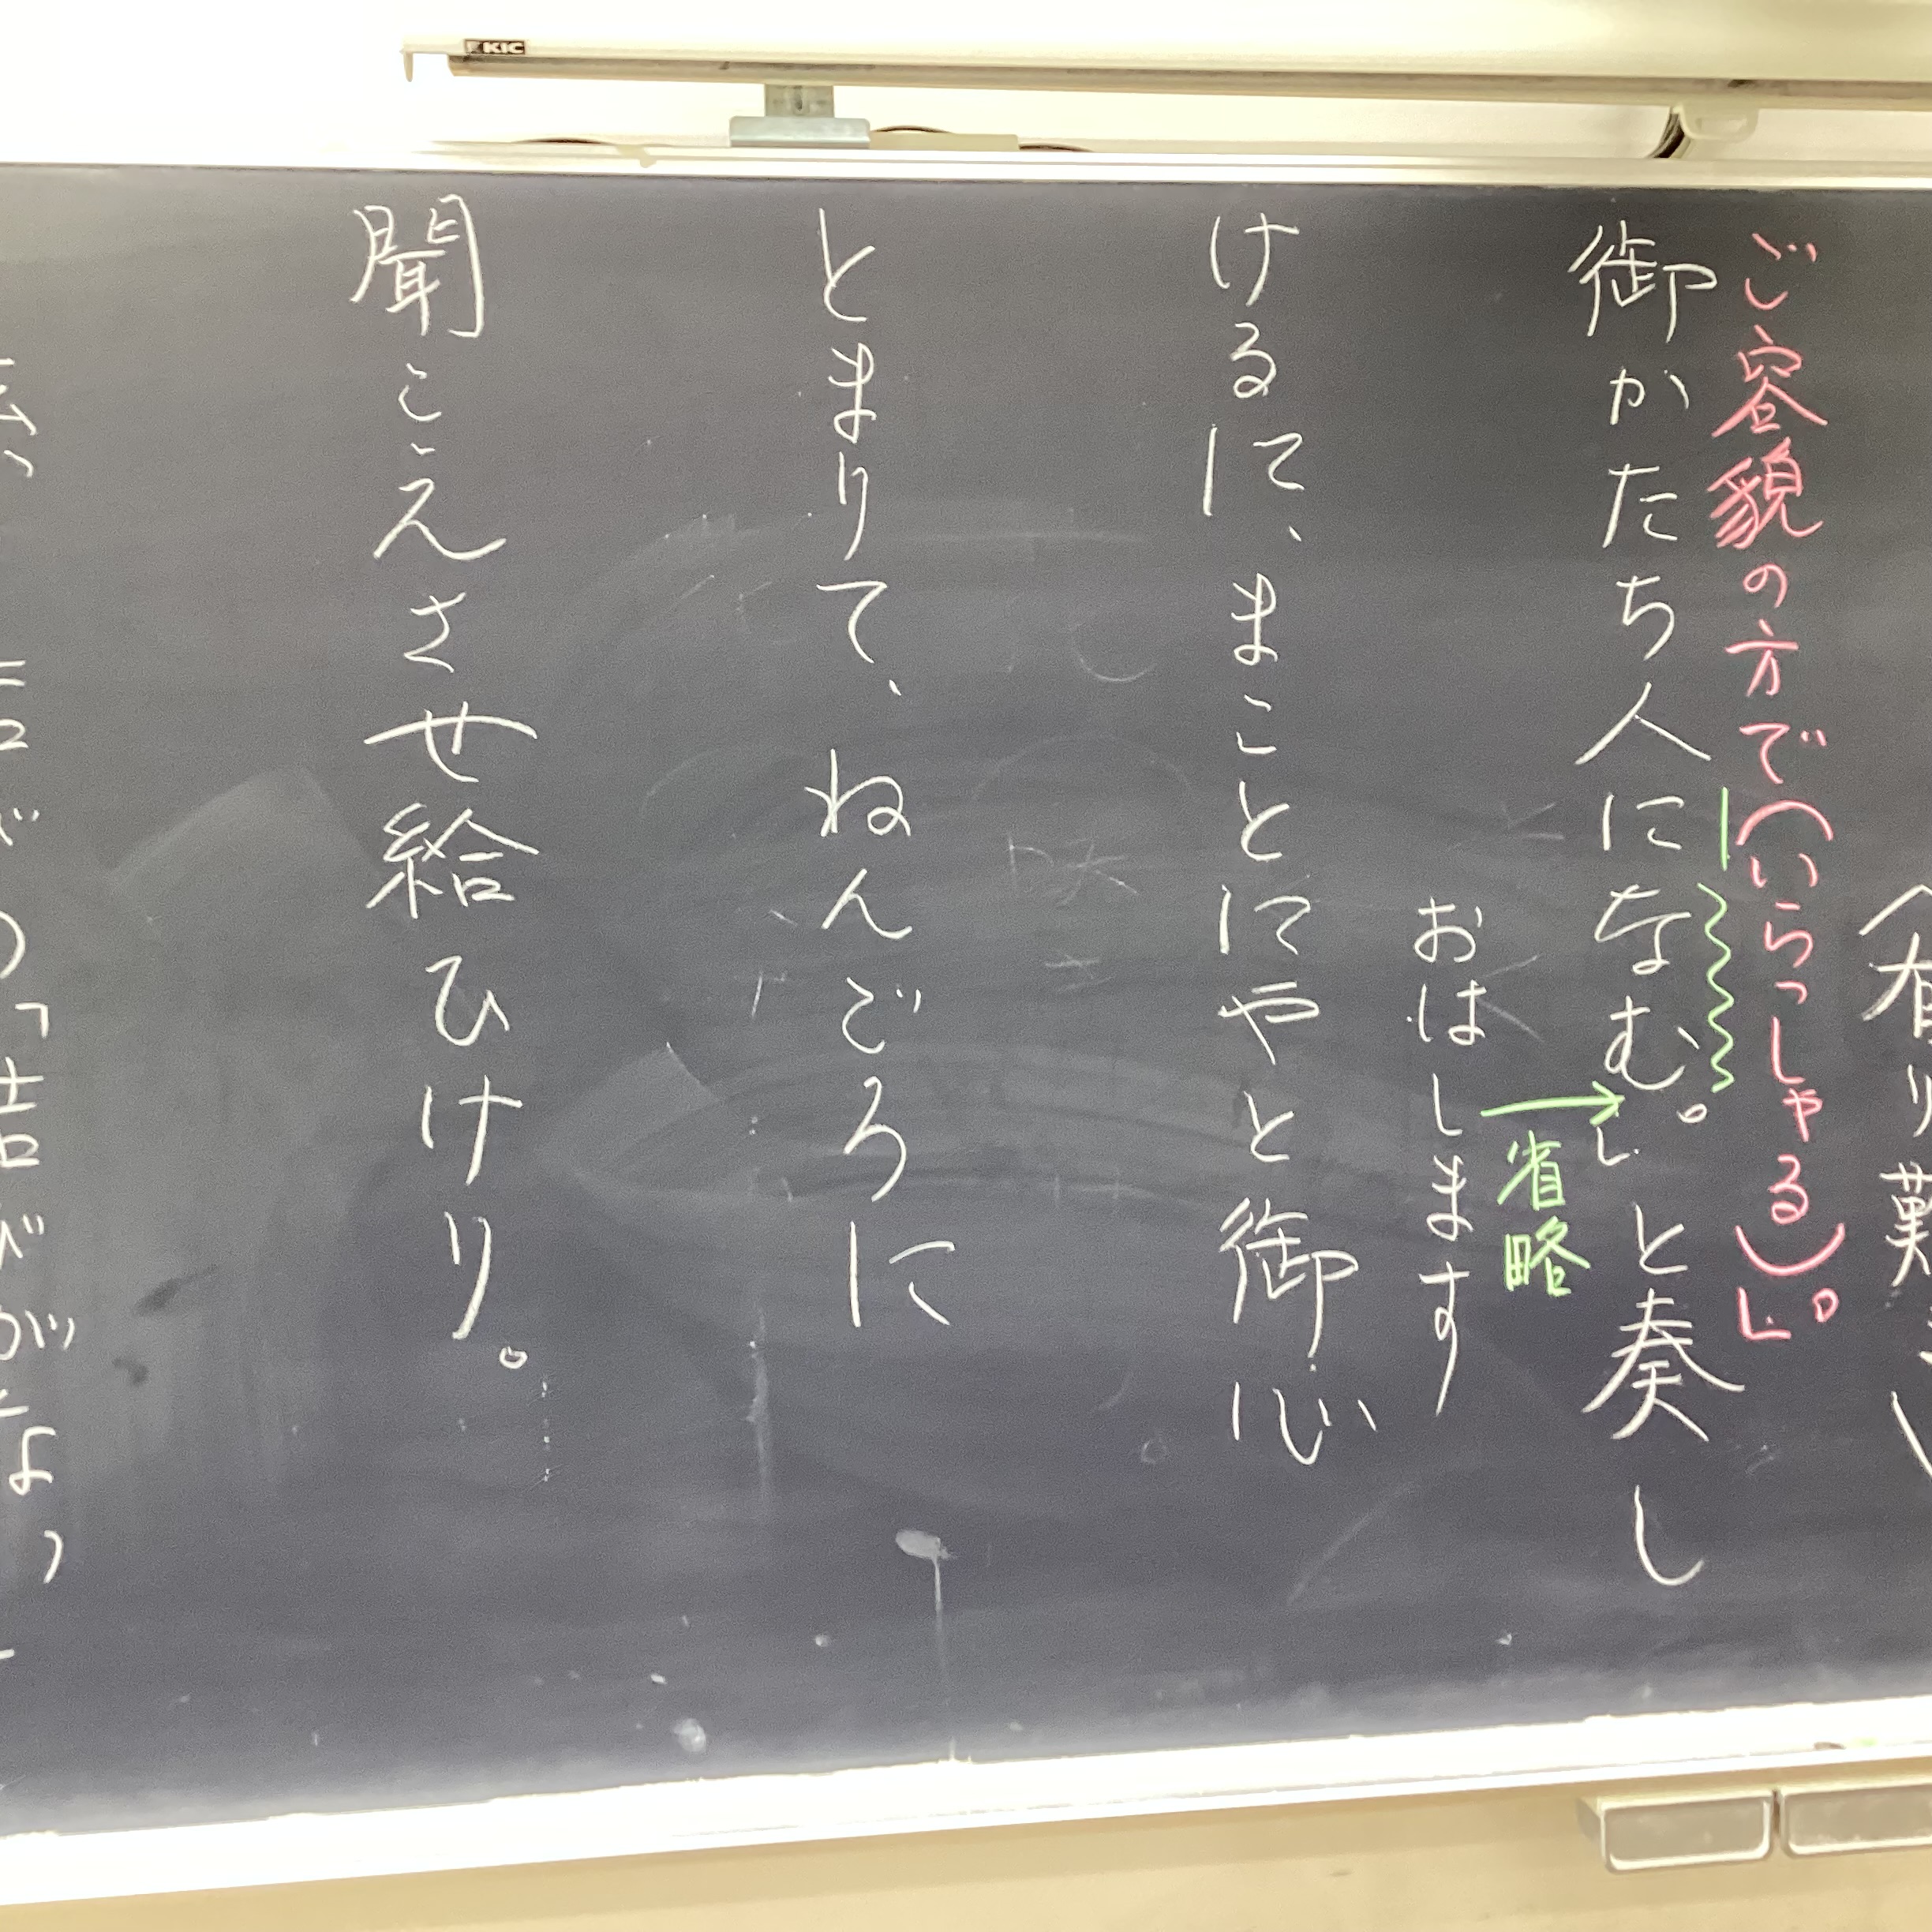 KIC
有り難い
ご容貌の方で(いらっしゃる)」。
御かたち人になむ。」と奏し
省略
おはします
けるに、まことにやと御心
とまりて、ねんごろに
聞こえさせ給ひけり。